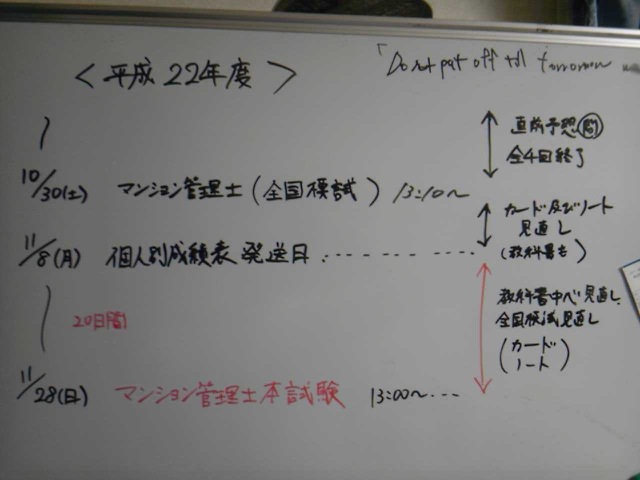 「Do not put off till tomorrow
<平成22年度>
直前予想問
全4回終了
10/30(土) マンション管理士(全国模試) 13:10~
カード及びノート
見直し
(教科書も)
11/8(月) 個人別成績表発送日
20日間
教科書中心見直し
全国模試見直し
(カード
ノート)
11/28(日) マンション管理士本試験 13:00~